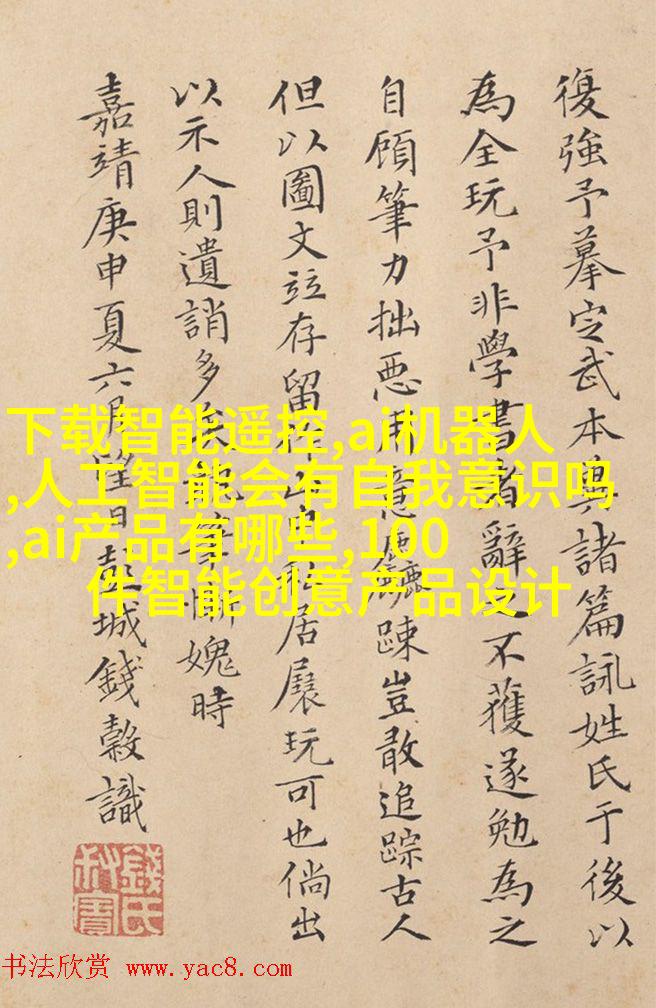 復強予摹定武本與諸篇詠姓氏于後以
為全玩予非學書者辭之不獲遂勉為之
自顧筆力拙惡用意麤踈豈敢追踪古人
但以圖文並存留 居展玩可也倘出
以示人則遺誚多矣 筆慚媿時
嘉靖庚申夏六月 日彭城錢榖識
下载智能遥控,ai机器人
,人工智能会有自我意识吗
,ai产品有哪些,100
件智能创意产品设计
书法欣赏 www.yac8.com